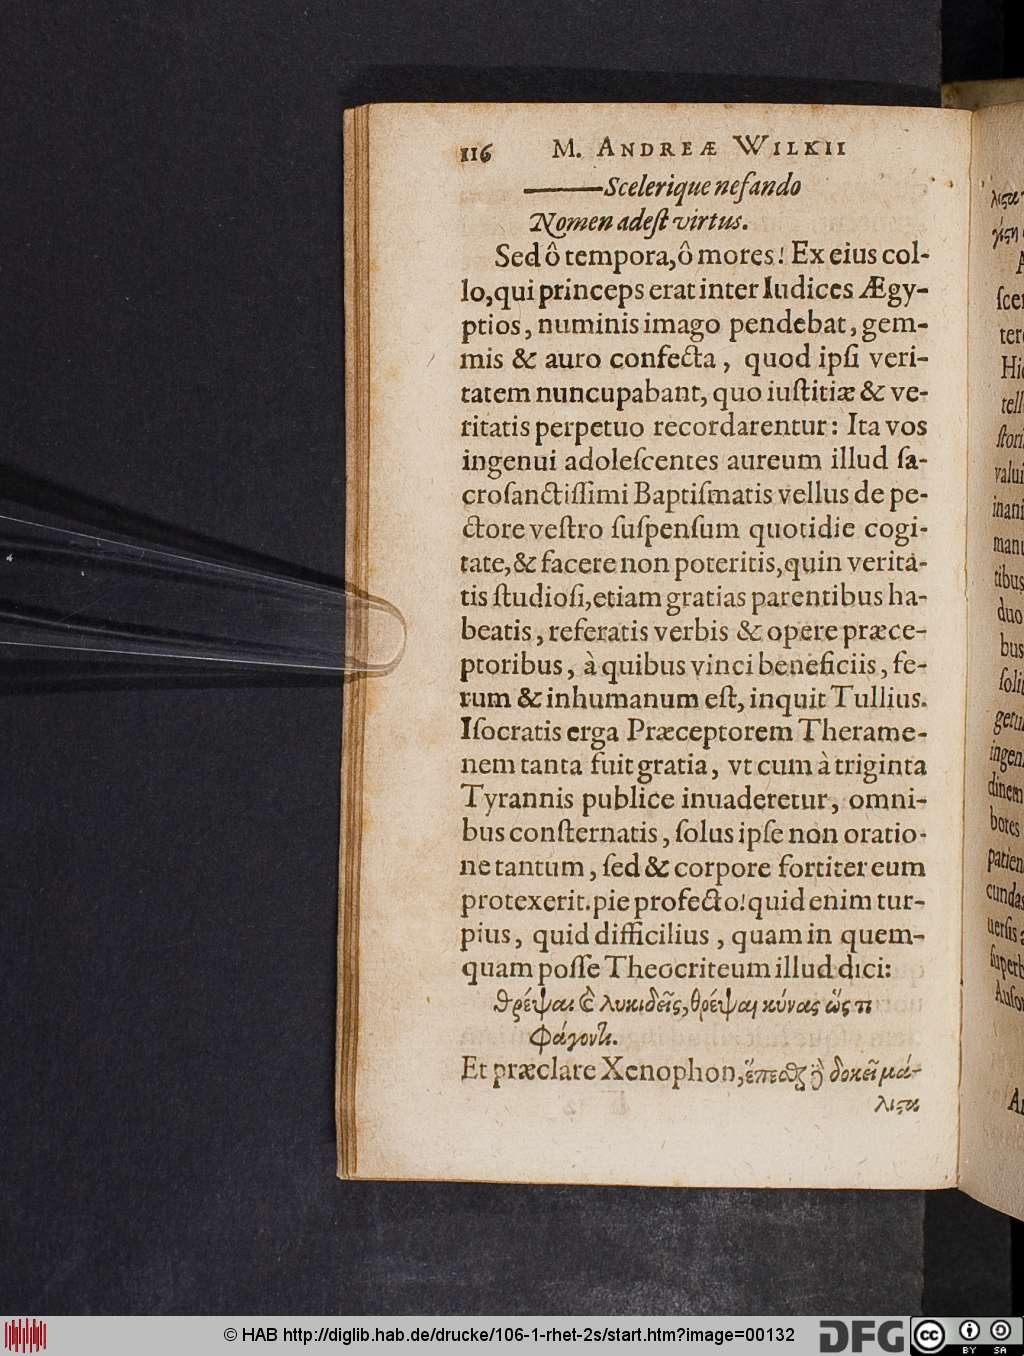 116 M. ANDREÆ WILKII
——Scelerique nefando
Nomen adest virtus.
Sed ô tempora, ô mores! Ex eius col-
lo, qui princeps erat inter Iudices Ægy-
ptios, numinis imago pendebat, gem-
mis & auro confecta, quod ipsi veri-
tatem nuncupabant, quo iustitiæ & ve-
ritatis perpetuo recordarentur: Ita vos
ingenui adolescentes aureum illud sa-
crosanctissimi Baptismatis vellus de pe-
ctore vestro suspensum quotidie cogi-
tate, & facere non poteritis, quin verita-
tis studiosi, etiam gratias parentibus ha-
beatis, referatis verbis & opere præce-
ptoribus, à quibus vinci beneficiis, fe-
rum & inhumanum est, inquit Tullius.
Isocratis erga Præceptorem Therame-
nem tanta fuit gratia, vt cum à triginta
Tyrannis publice inuaderetur, omni-
bus consternatis, solus ipse non oratio-
ne tantum, sed & corpore fortiter eum
protexerit. pie profecto! quid enim tur-
pius, quid difficilius, quam in quem-
quam posse Theocriteum illud dici:
θρέψαι λυκιδεῖς, θρέψαι κύνας ὥς τι
φάγοντι.
Et præclare Xenophon, ἕπεσθαι δὲ δοκεῖ μά-
λιστα
© HAB http://diglib.hab.de/drucke/106-1-rhet-2s/start.htm?image=00132
DFG
cc BY SA